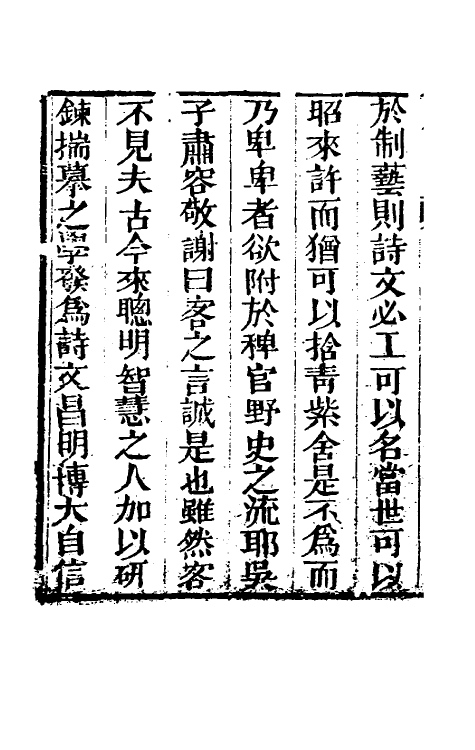 於制藝則詩文必工可以名當世可以
昭來許而猶可以拾靑紫舍是不爲而
乃卑卑者欲附於稗官野史之流耶吳
子肅容敬謝曰客之言誠是也雖然客
不見夫古今來聰明智慧之人加以硏
鍊揣摹之學發爲詩文昌明博大自信